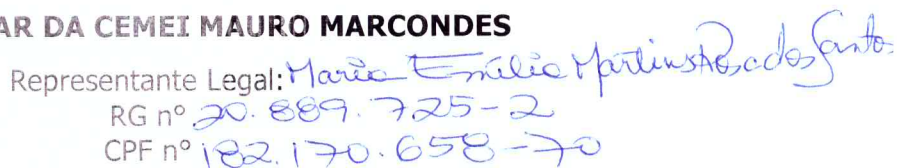 AR DA CEMEI MAURO MARCONDES
Representante Legal: Maria Emilia Martins Rosa dos Santos
RG nº 20.889.725-2
CPF nº 182.170.658-70